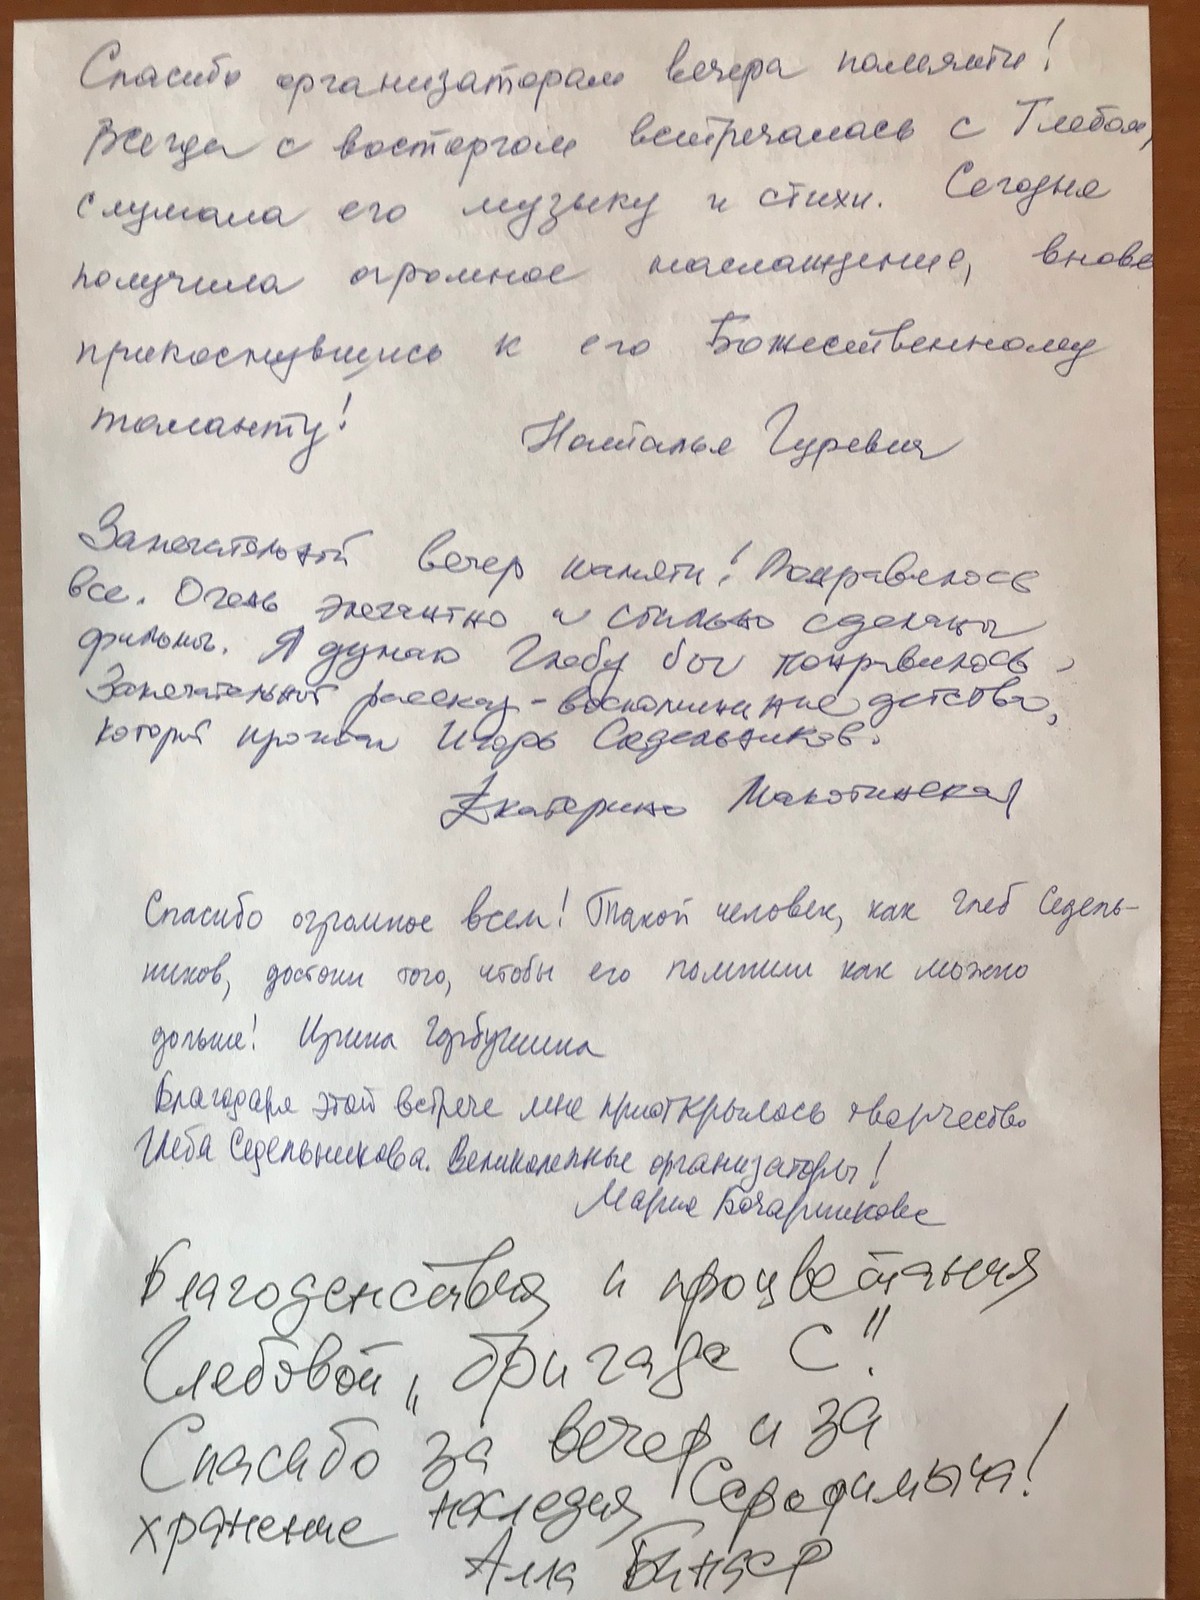 Спасибо организаторам вечера памяти!
Всегда с восторгом встречалась с Глебом,
слушала его музыку и стихи. Сегодня
получила огромное наслаждение, вновь
прикоснувшись к его Божественному
таланту!
Наталья Гуревич
Замечательный вечер памяти! Понравилось
все. Очень элегантно и стильно сделаны
фильмы. Я думаю Глебу бы понравилось,
Замечательный рассказ-воспоминание детства,
который прочитал Игорь Седельников.
Екатерина Макотинская
Спасибо огромное всем! Такой человек, как Глеб Седель-
ников, достоин того, чтобы его помнили как можно
дольше! Ирина Горбушина
Благодаря этой встрече мне приоткрылось творчество
Глеба Седельникова. Великолепные организаторы!
Мария Бочарникова
Благоденствия и процветания
Глебовой „бригаде С"!
Спасибо за вечер и за
хранение наследия Серафимыча!
Алла